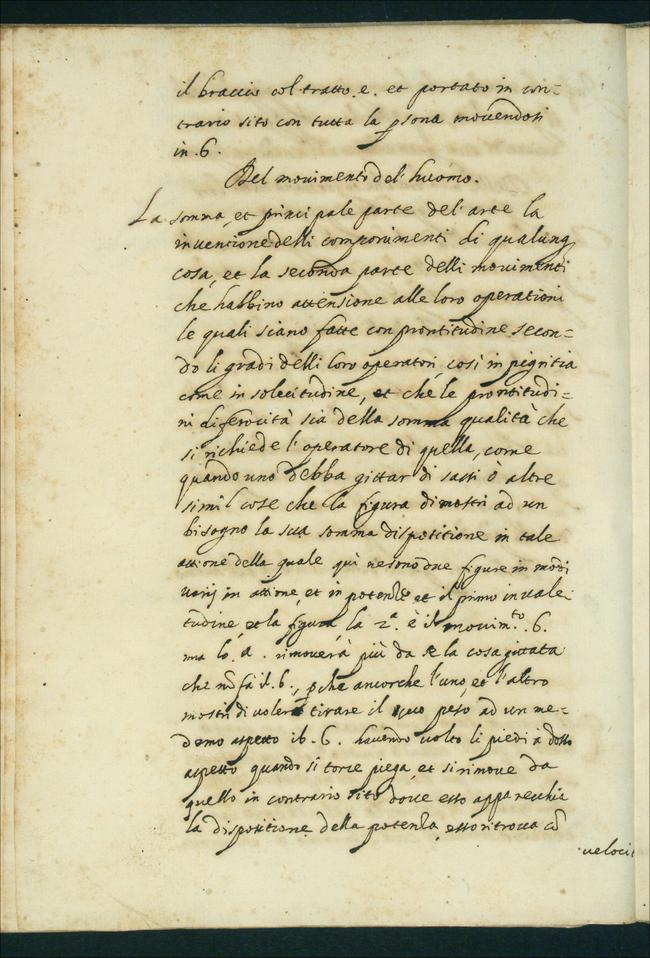 il braccio col tratto .e. et portato in con=
trario sito con tutta la psona movendosi
in .6.
Del movimento del' huomo.
La somma, et principale parte del' arte la
inventione delli componimenti di qualunq
cosa, et la seconda parte delli movimenti
che habbino attensione alle loro operationi
le quali siano fatte con prontitudine secon=
do li gradi delli loro operatori così in pigritia
come in solecitudine, et che le prontitudi=
ni di ferocità sia della somma qualità che
si richiede l'operatore di quella, come
quando uno debba gittar di sassi ò altre
simil cose che la figura dimostri ad un
bisogno la sua somma dispositione in tale
attione della quale quì ne sono due figure in modi
varij in attione, et in potenza et il primo in vale
tudine, et la figura la 2.ª è il movim.to .6.
ma lo .a. rimoverà più da se la cosa gittata
che nõ fà il .b., pche ancorche l'uno, et l'altro
mostri di voler tirare il suo peso ad un me=
demo aspetto il .6. havendo volto li piedi à detto
aspetto quando si torce piega, et si rimove da
quello in contrario sito dove esso apparecchia
la dispositione della potenza, esso ritrova cõ
veloci